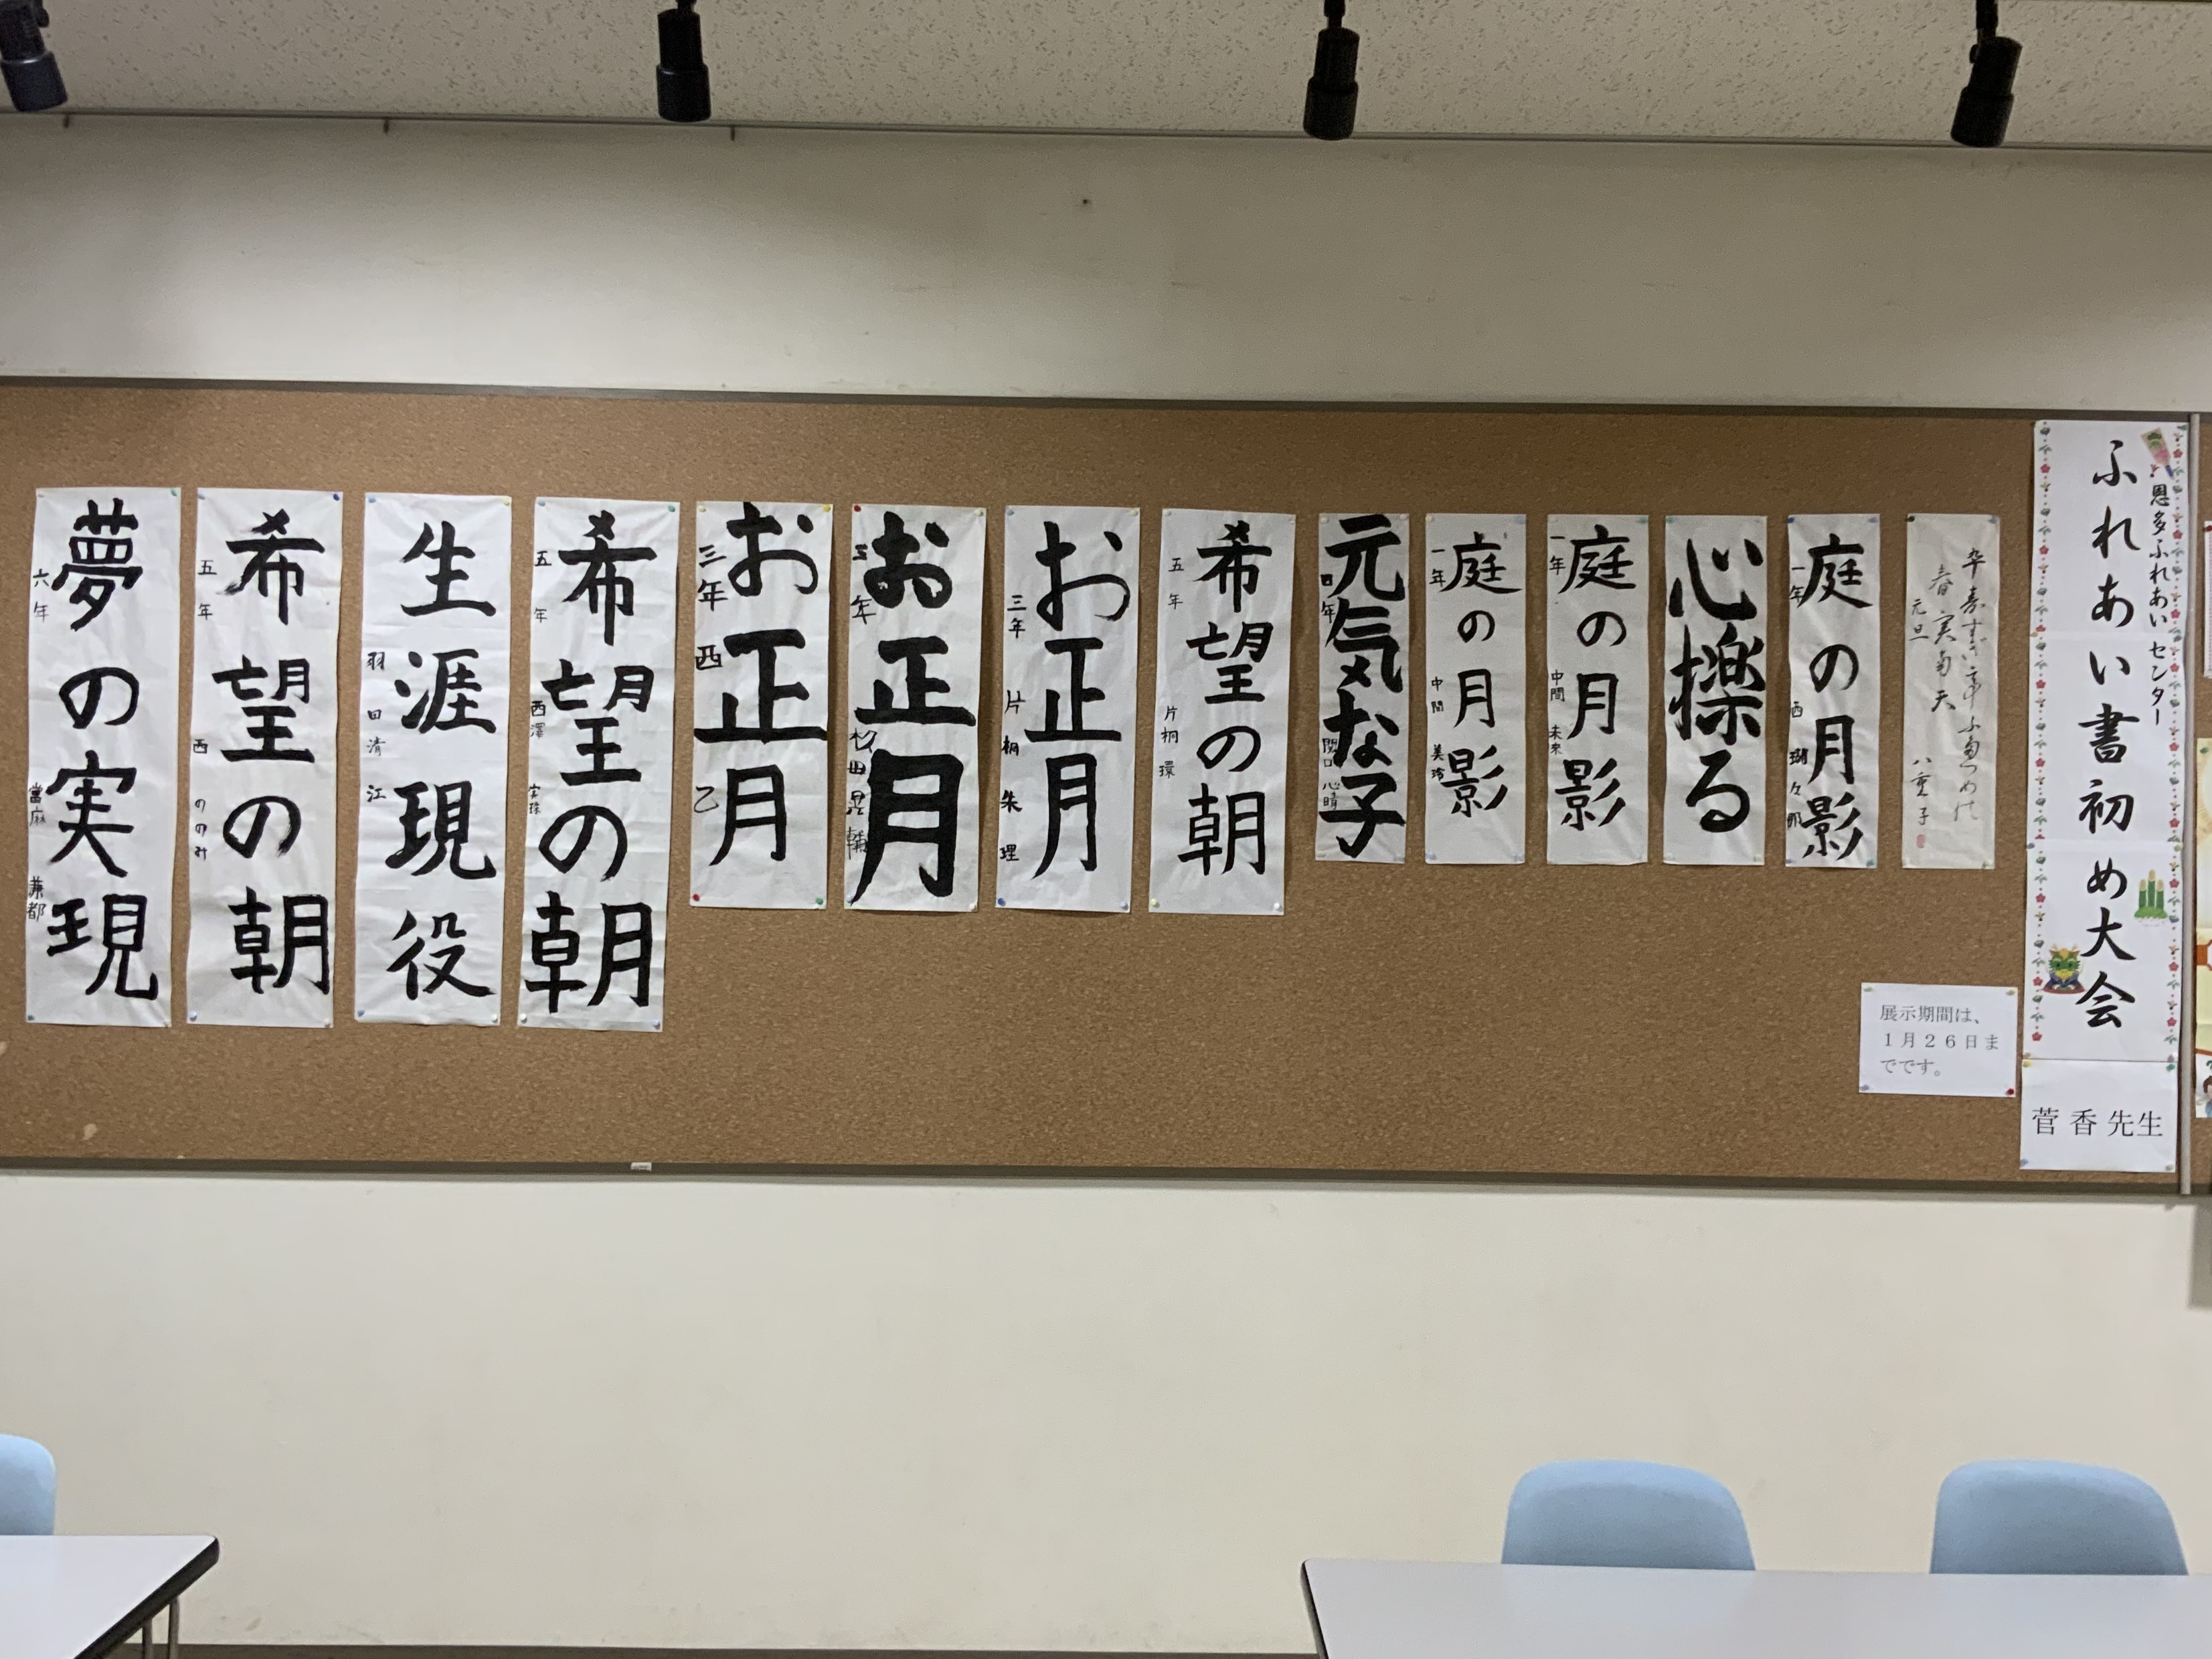 恩多ふれあいセンター
ふれあい書初め大会
菅 香 先生
展示期間は、
1月26日ま
でです。
春実南天
元旦
八重子
庭の月影
一年
西
瑚々那
心擽る
庭の月影
一年
中間
未来
庭の月影
一年
中間
美玲
元気な子
四年
関口
心晴
希望の朝
五年
片桐
環
お正月
三年
片桐
朱理
お正月
三年
杉田
お正月
三年
西
乙
希望の朝
五年
西澤
生涯現役
羽田清江
希望の朝
五年
西
ののみ
夢の実現
六年
當麻
兼都